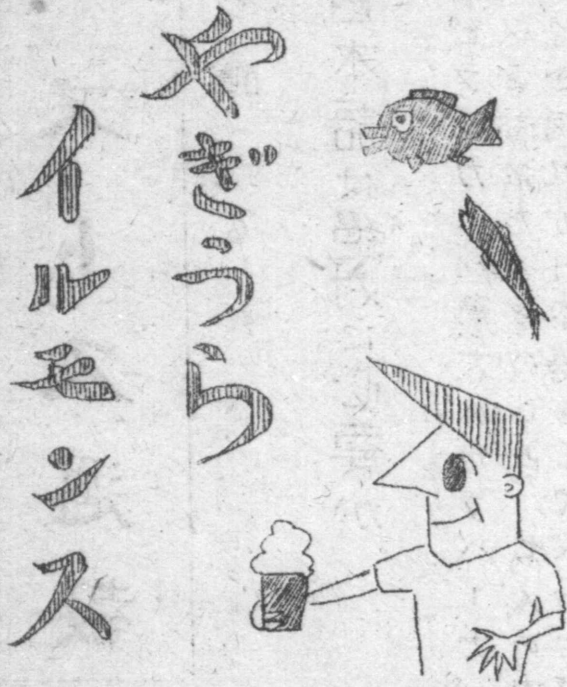 やぎうら
イルモンス